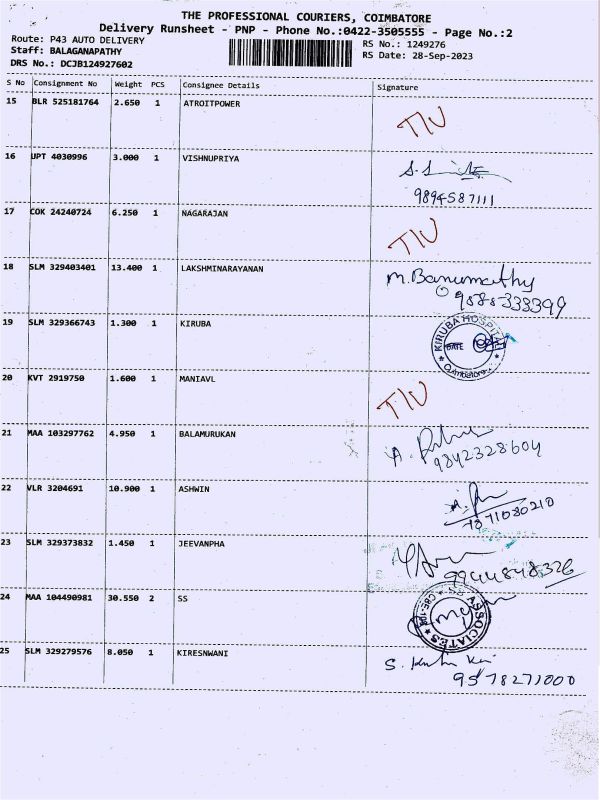 THE PROFESSIONAL COURIERS, COIMBATORE
Delivery Runsheet - PNP - Phone No.:0422-3505555 - Page No.:2
Route: P43 AUTO DELIVERY
RS No.: 1249276
Staff: BALAGANAPATHY
RS Date: 28-Sep-2023
DRS No.: DCJB124927602
S No Consignment No Weight PCS Consignee Details Signature
15 BLR 525181764 2.650 1 ATROITPOWER
T/U
16 JPT 4030996 3.000 1 VISHNUPRIYA
9894587111
17 COK 24240724 6.250 1 NAGARAJAN
T/U
18 SLM 329403401 13.400 1 LAKSHMINARAYANAN
M. Banumathy
9585333399
19 SLM 329366743 1.300 1 KIRUBA
KIRUBA HOSPITAL
DATE
Coimbatore
20 KVT 2919750 1.600 1 MANIAVL
T/U
21 MAA 103297762 4.950 1 BALAMURUKAN
9842328604
22 VLR 3204691 10.900 1 ASHWIN
7871080210
23 SLM 329373832 1.450 1 JEEVANPHA
9944848326
24 MAA 104490981 30.550 2 SS
SS ASSOCIATES
25 SLM 329279576 8.050 1 KIRESNWANI
9578271000